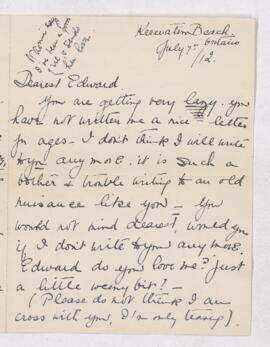 Keewatin Beach
Ontario
July 7th
/12.
Dearest Edward.
You are getting very lazy. you
have not written me a nice letter
for ages. I don't think I will write
to you any more. it is such a
bother & trouble writing to an old
nuisance like you — You
would not mind dearest, would you
if I don't write to you any more.
Edward do you love me? just
a little weeny bit? —
(Please do not think I am
cross with you, I'm only teasing)